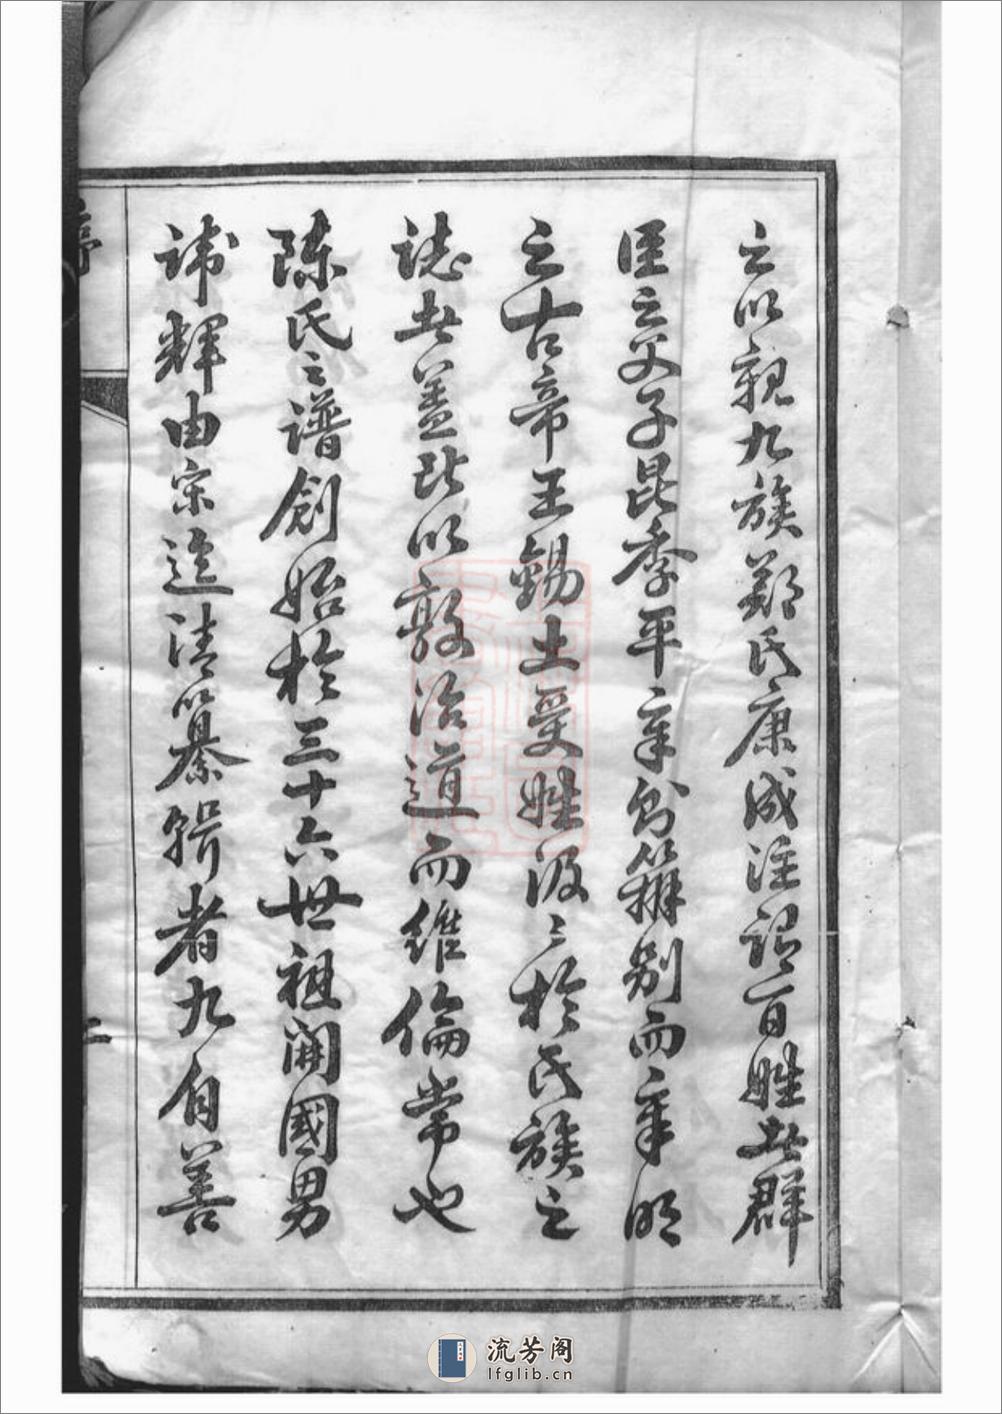 之以親九族鄭氏康成注謂百姓者群
臣之父子昆季平章乃辨別而章明
之古帝王錫土受姓汲汲於氏族之
誌者蓋此以敦治道而維倫常也
陳氏之譜創始於三十六世祖開國男
諱輝由宋迄清纂輯者九自善
序
二
流芳阁
lfglib.cn